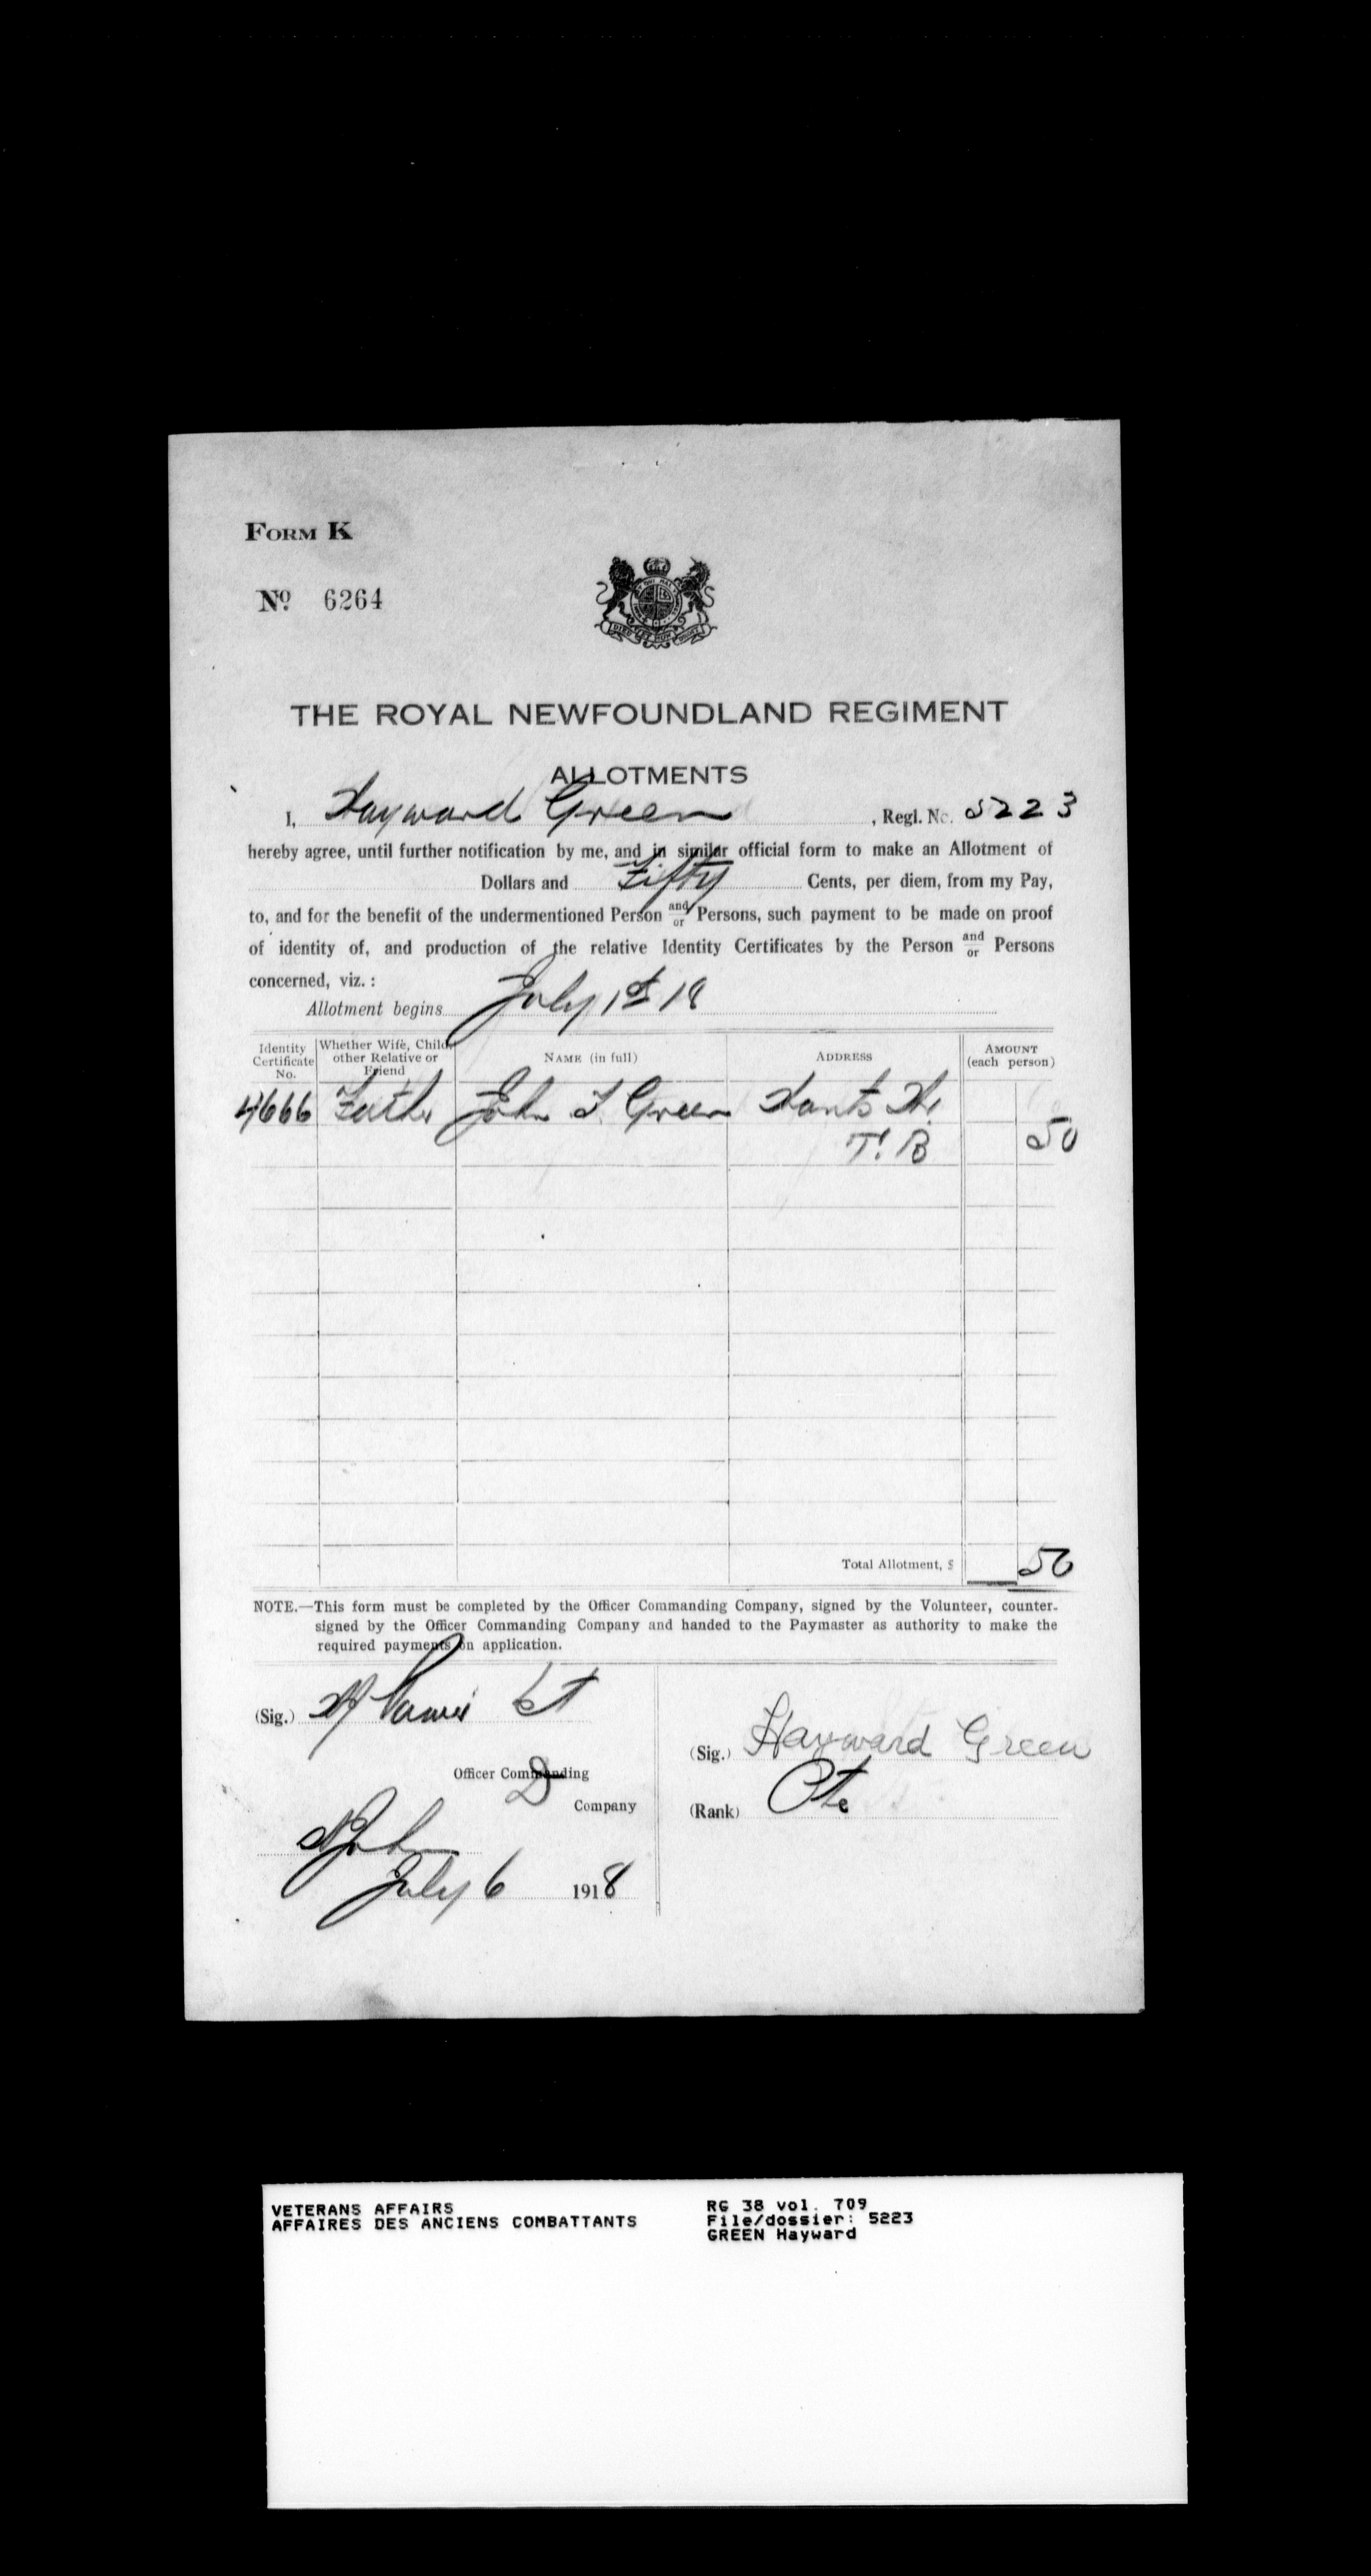 FORM K
No. 6264
THE ROYAL NEWFOUNDLAND REGIMENT
ALLOTMENTS
I, Hayward Green, Regl. No. 5223
hereby agree, until further notification by me, and in similar official form to make an Allotment of
Dollars and Fifty Cents, per diem, from my Pay,
to, and for the benefit of the undermentioned Person and/or Persons, such payment to be made on proof
of identity of, and production of the relative Identity Certificates by the Person and/or Persons
concerned, viz. :
Allotment begins July 1st 18
Identity Certificate No. Whether Wife, Child, other Relative or Friend NAME (in full) ADDRESS AMOUNT (each person)
4666 Father John T Green Hants Hr
T. B 50
Total Allotment, $ 50
NOTE.—This form must be completed by the Officer Commanding Company, signed by the Volunteer, counter-
signed by the Officer Commanding Company and handed to the Paymaster as authority to make the
required payments on application.
(Sig.) Lt
(Sig.) Hayward Green
Officer Commanding
D Company
(Rank) Pte
July 6 1918
VETERANS AFFAIRS
AFFAIRES DES ANCIENS COMBATTANTS
RG 38 vol. 709
File/dossier: 5223
GREEN Hayward